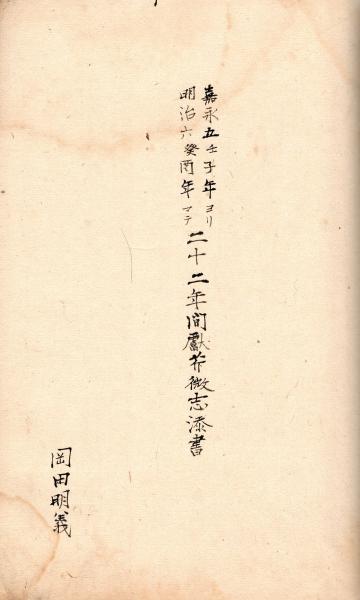 嘉永五壬子年ヨリ
明治六癸酉年マテ
二十二年間獻芹微志添書
岡田明義